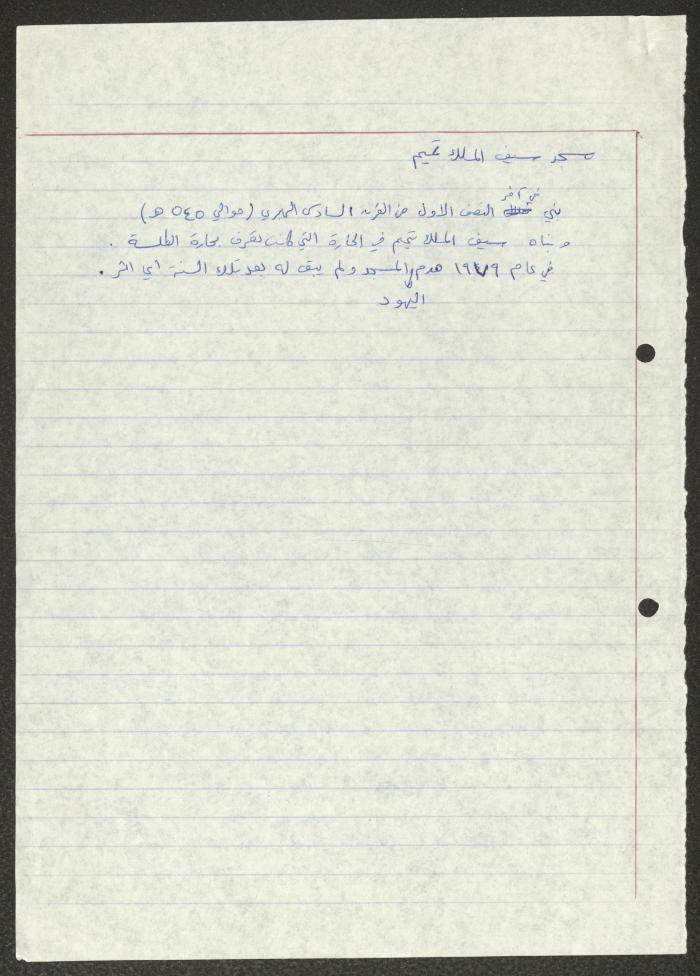 مسجد سيف الملك تميم
في آخر
بني النصف الاول من القرن السادس الهجري (حوالي ٥٤٥ هـ)
و بناه سيف الملك تميم في الحارة التي كانت تعرف بحارة الطلسة .
في عام ١٩٧٩ هدم المسجد ولم يبق له بعد تلك السنة أي اثر .
اليهود